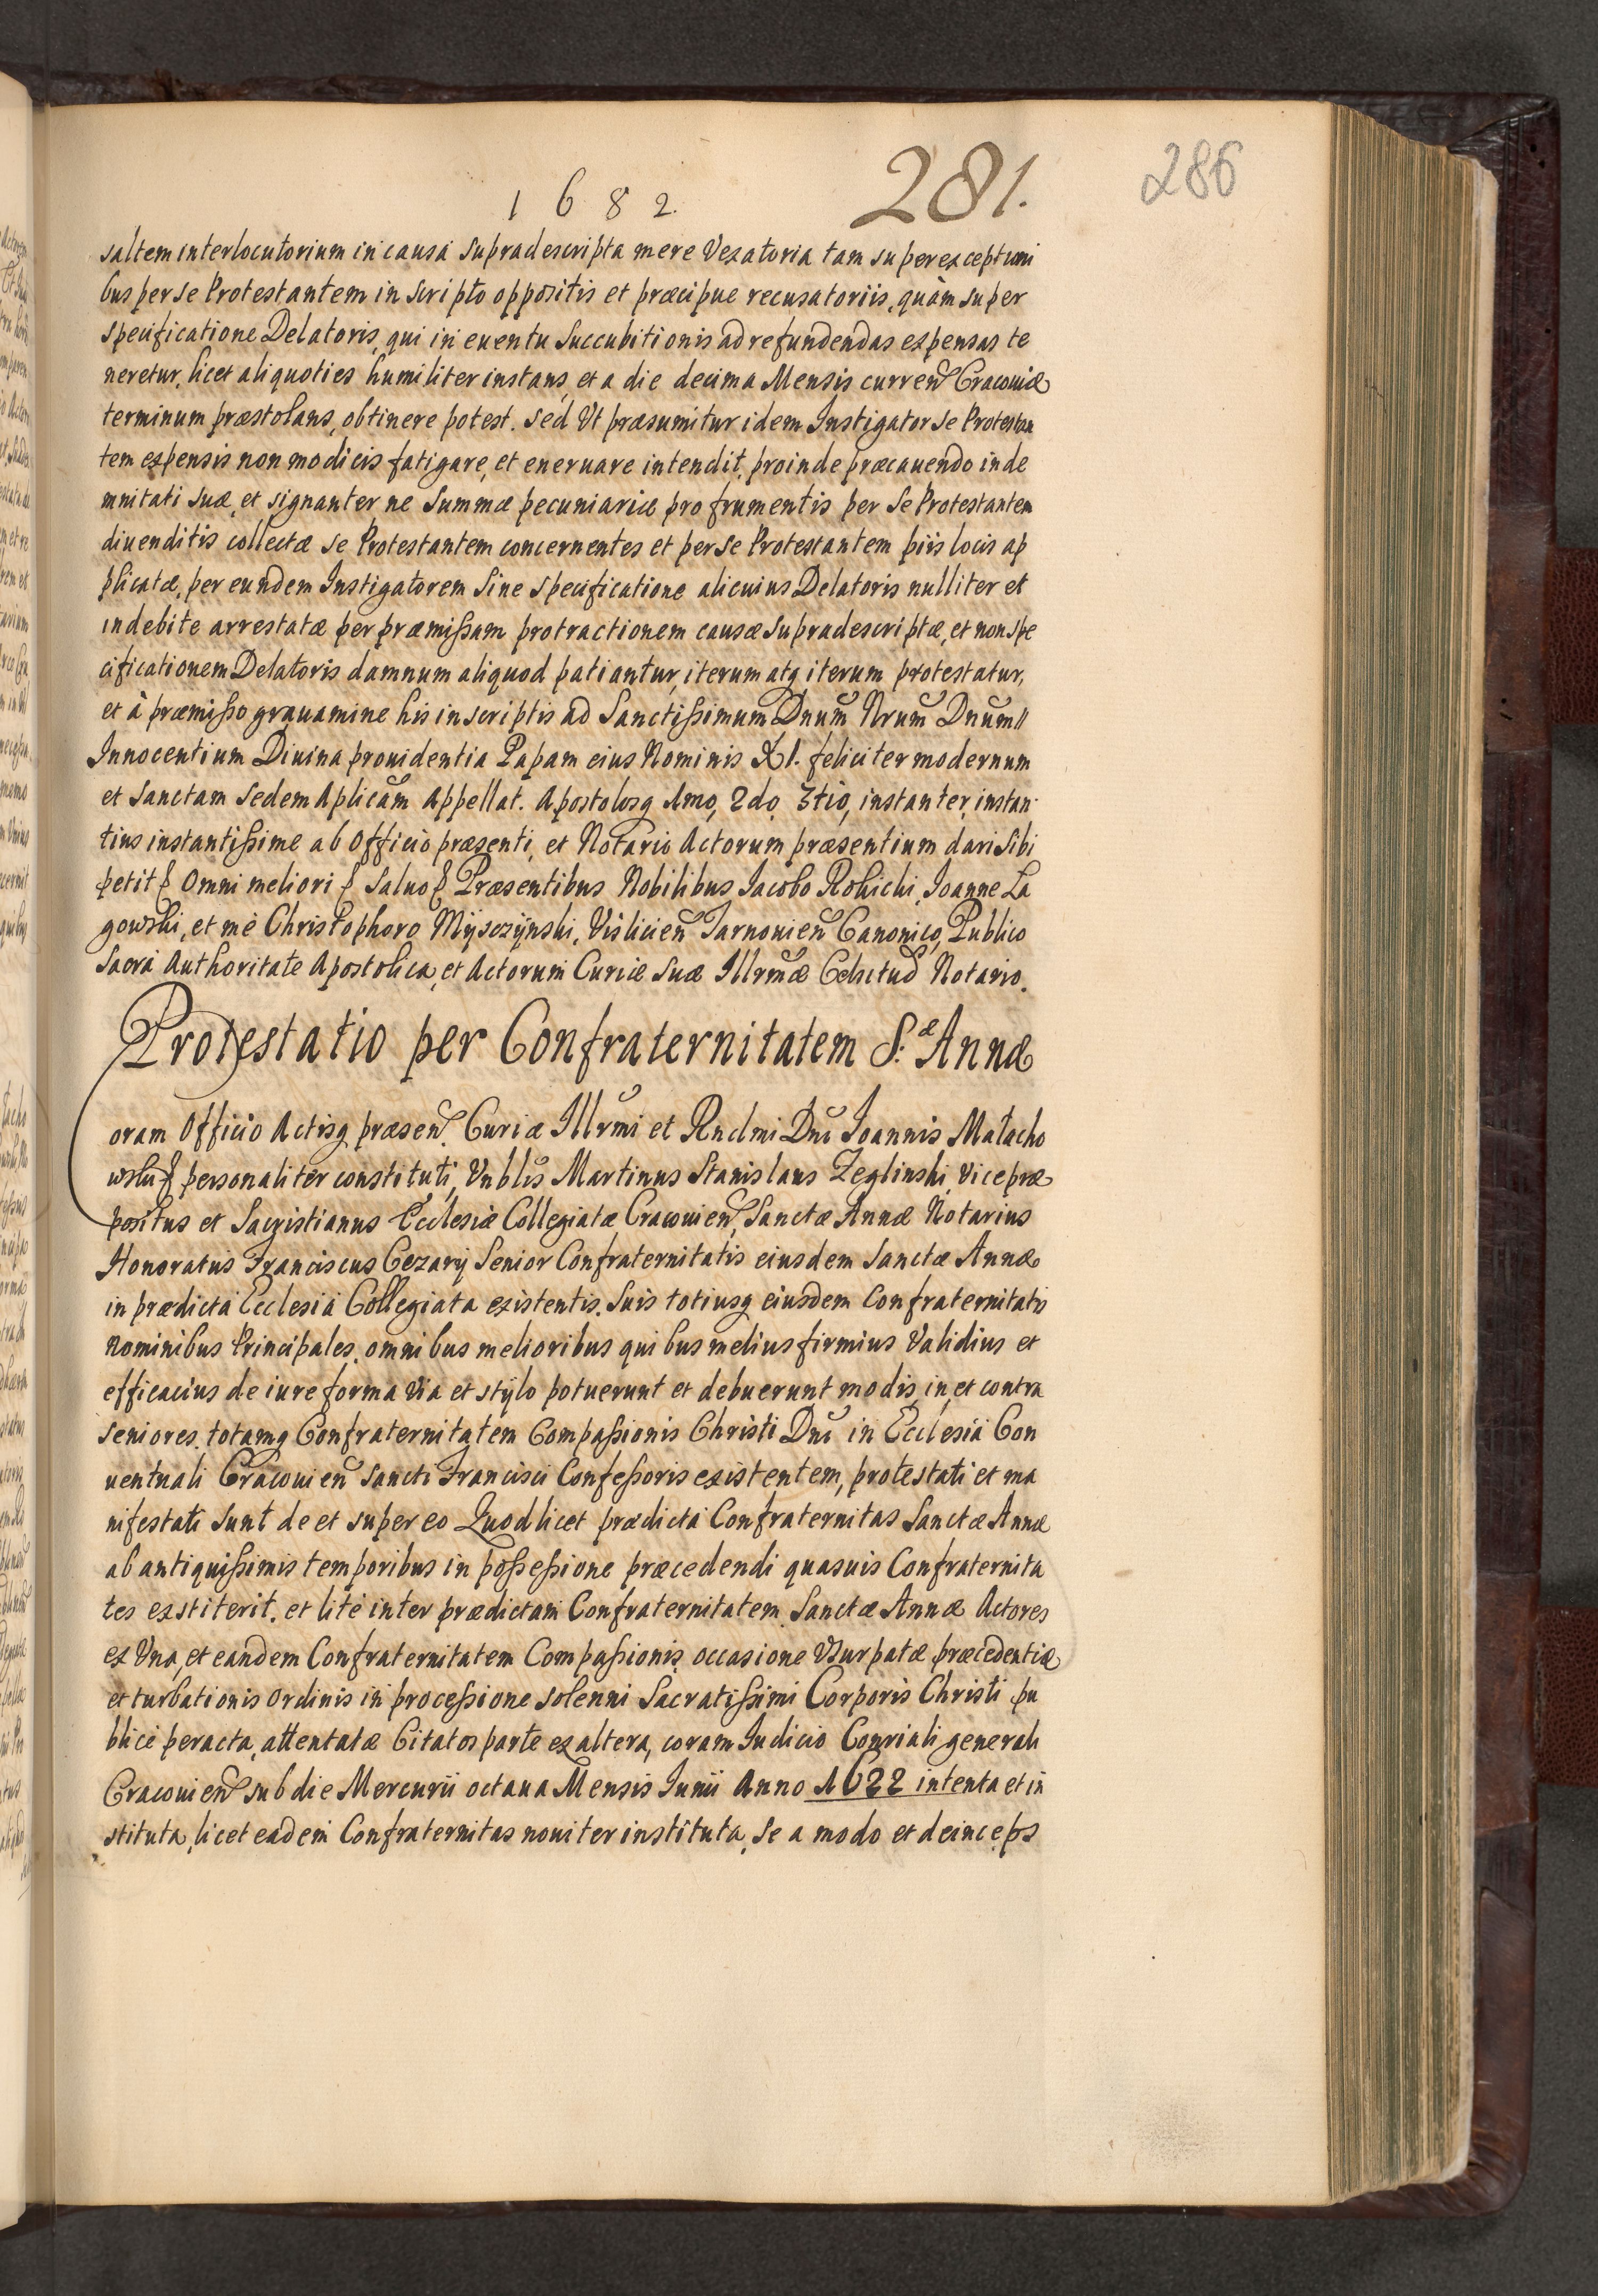 1682.
281.
286
saltem interlocutorium in causa supradescripta mere Vexatoria tam super exceptioni
bus per se Protestantem in scripto oppositis et præcipue recusatoriis, quàm super
specificatione Delatoris, qui in euentu succubitionis ad refundendas expensas te
neretur, licet aliquoties humiliter instans, et a die decima Mensis curren Cracouiæ
terminum præstolans, obtinere potest. sed Vt præsumitur idem Instigator se Protestan
tem expensis non modicis fatigare, et eneruare intendit, proinde præcauendo inde
mnitati suæ, et signanter ne summæ pecuniariæ pro frumentis per se Protestantem
diuenditis collectæ se Protestantem concernentes et per se Protestantem piis locis ap
plicatæ, per eundem Instigatorem sine specificatione alicuius Delatoris nulliter et
indebite arrestatæ per præmissam protractionem causæ supradescriptæ, et non spe
cificationem Delatoris damnum aliquod patiantur, iterum atq iterum protestatur,
et à præmisso grauamine his in scriptis ad Sanctissimum Dnum Nrum Dnum
Innocentium Diuina prouidentia Papam eius Nominis XI. feliciter modernum
et Sanctam Sedem Aplicam Appellat. Apostolosq 1mo, 2do, 3tio, instanter, instan
tius instantissime ab Officio præsenti, et Notario Actorum præsentium dari sibi
petit Omni meliori saluo Præsentibus Nobilibus Iacobo Rohichi, Ioanne La
gowski, et me Christophoro Mÿsczÿnski, Vislicien Tarnouien Canonico, Publico
Sacra Authoritate Apostolica, et Actorum Curiæ suæ Illrmæ Celsitud Notario.
Protestatio per Confraternitatem S.æ Annæ
Coram Officio Actisq præsen Curiæ Illrmi et Rndmi Dni Ioannis Małacho
wski personaliter constituti, Vnblis Martinus Stanislaus Zeglinski, Vicepræ
positus et Sacristianus Ecclesiæ Collegiatæ Cracouien Sanctæ Annæ Notarius
Honoratus Franciscus Cezarÿ Senior Confraternitatis eiusdem Sanctæ Annæ
in prædicta Ecclesia Collegiata existentis. suis totiusq eiusdem Confraternitatis
nominibus Principales, omnibus melioribus quibus melius firmius Validius et
efficacius de iure forma Via et stÿlo potuerunt et debuerunt modis, in et contra
seniores, totamq Confraternitatem Compassionis Christi Dni in Ecclesia Con
uentuali Cracouien Sancti Francisci Confessoris existentem, protestati et ma
nifestati sunt de et super eo Quod licet prædicta Confraternitas Sanctæ Annæ
ab antiquissimis temporibus in possessione præcedendi quasuis Confraternita
tes exstiterit, et lite inter prædictam Confraternitatem Sanctæ Annæ Actores
ex Vna, et eandem Confraternitatem Compassionis, occasione Vsurpatæ præcedentiæ
et turbationis ordinis in processione solenni Sacratissimi Corporis Christi pu
blice peracta, attentatæ Citatos parte ex altera, coram Iudicio Conriali generali
Cracouien sub die Mercurii octaua Mensis Iunii Anno 1622 intenta et in
stituta, licet eadem Confraternitas nouiter instituta, se a modo et deinceps